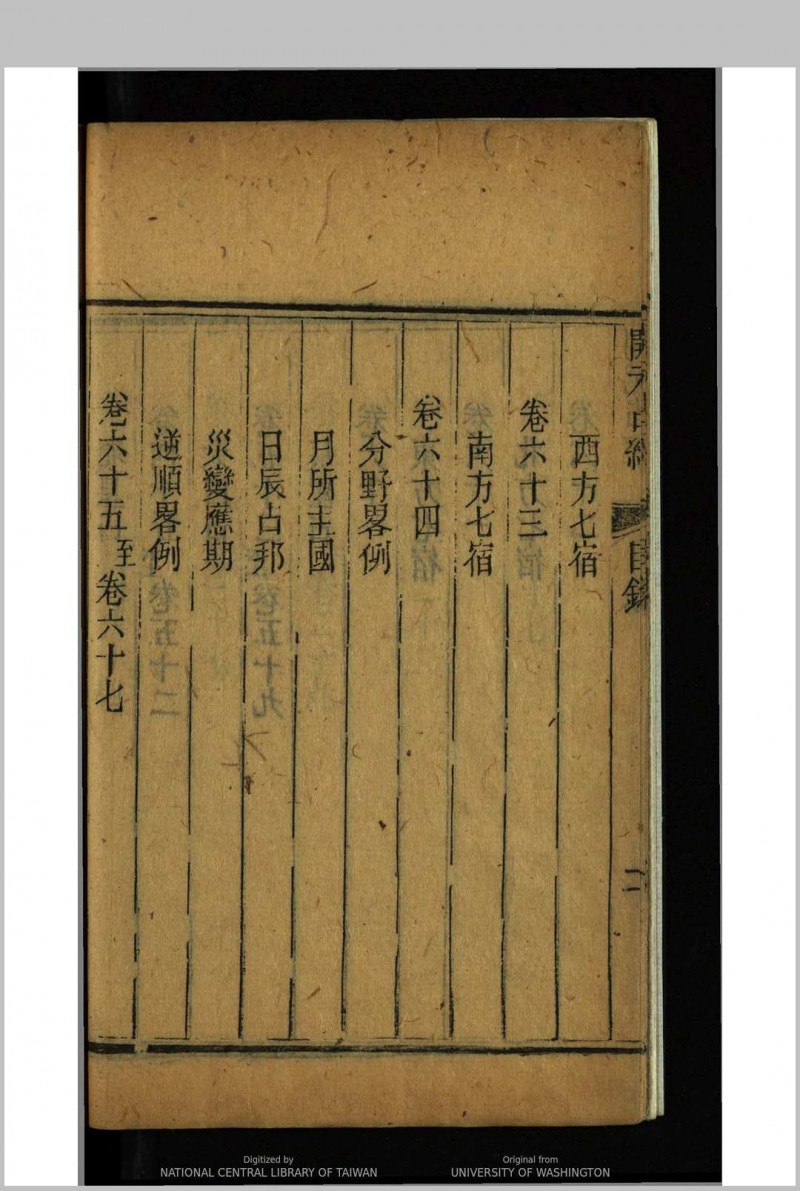 開元占經 目錄 二
西方七宿
卷六十三
南方七宿
卷六十四
分野畧例
月所主國
日辰占邦
災變應期
逆順畧例
卷六十五至卷六十七
Digitized by
NATIONAL CENTRAL LIBRARY OF TAIWAN
Original from
UNIVERSITY OF WASHINGTON